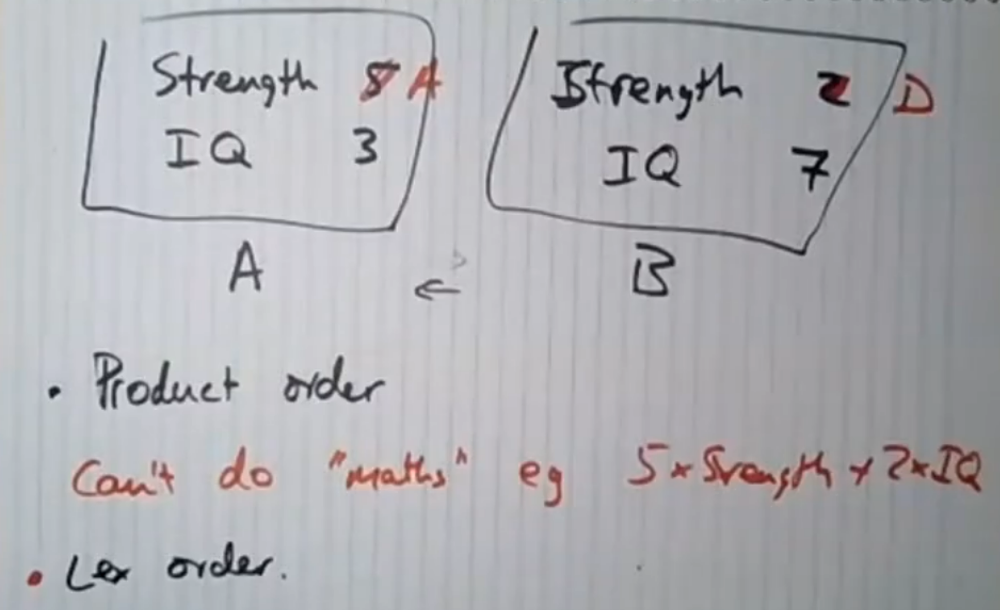 Strength 8 A
IQ 3
A
Strength 2 D
IQ 7
B
←
• Product order
Can't do "maths" eg 5 * Strength + 2 * IQ
• Lex order.